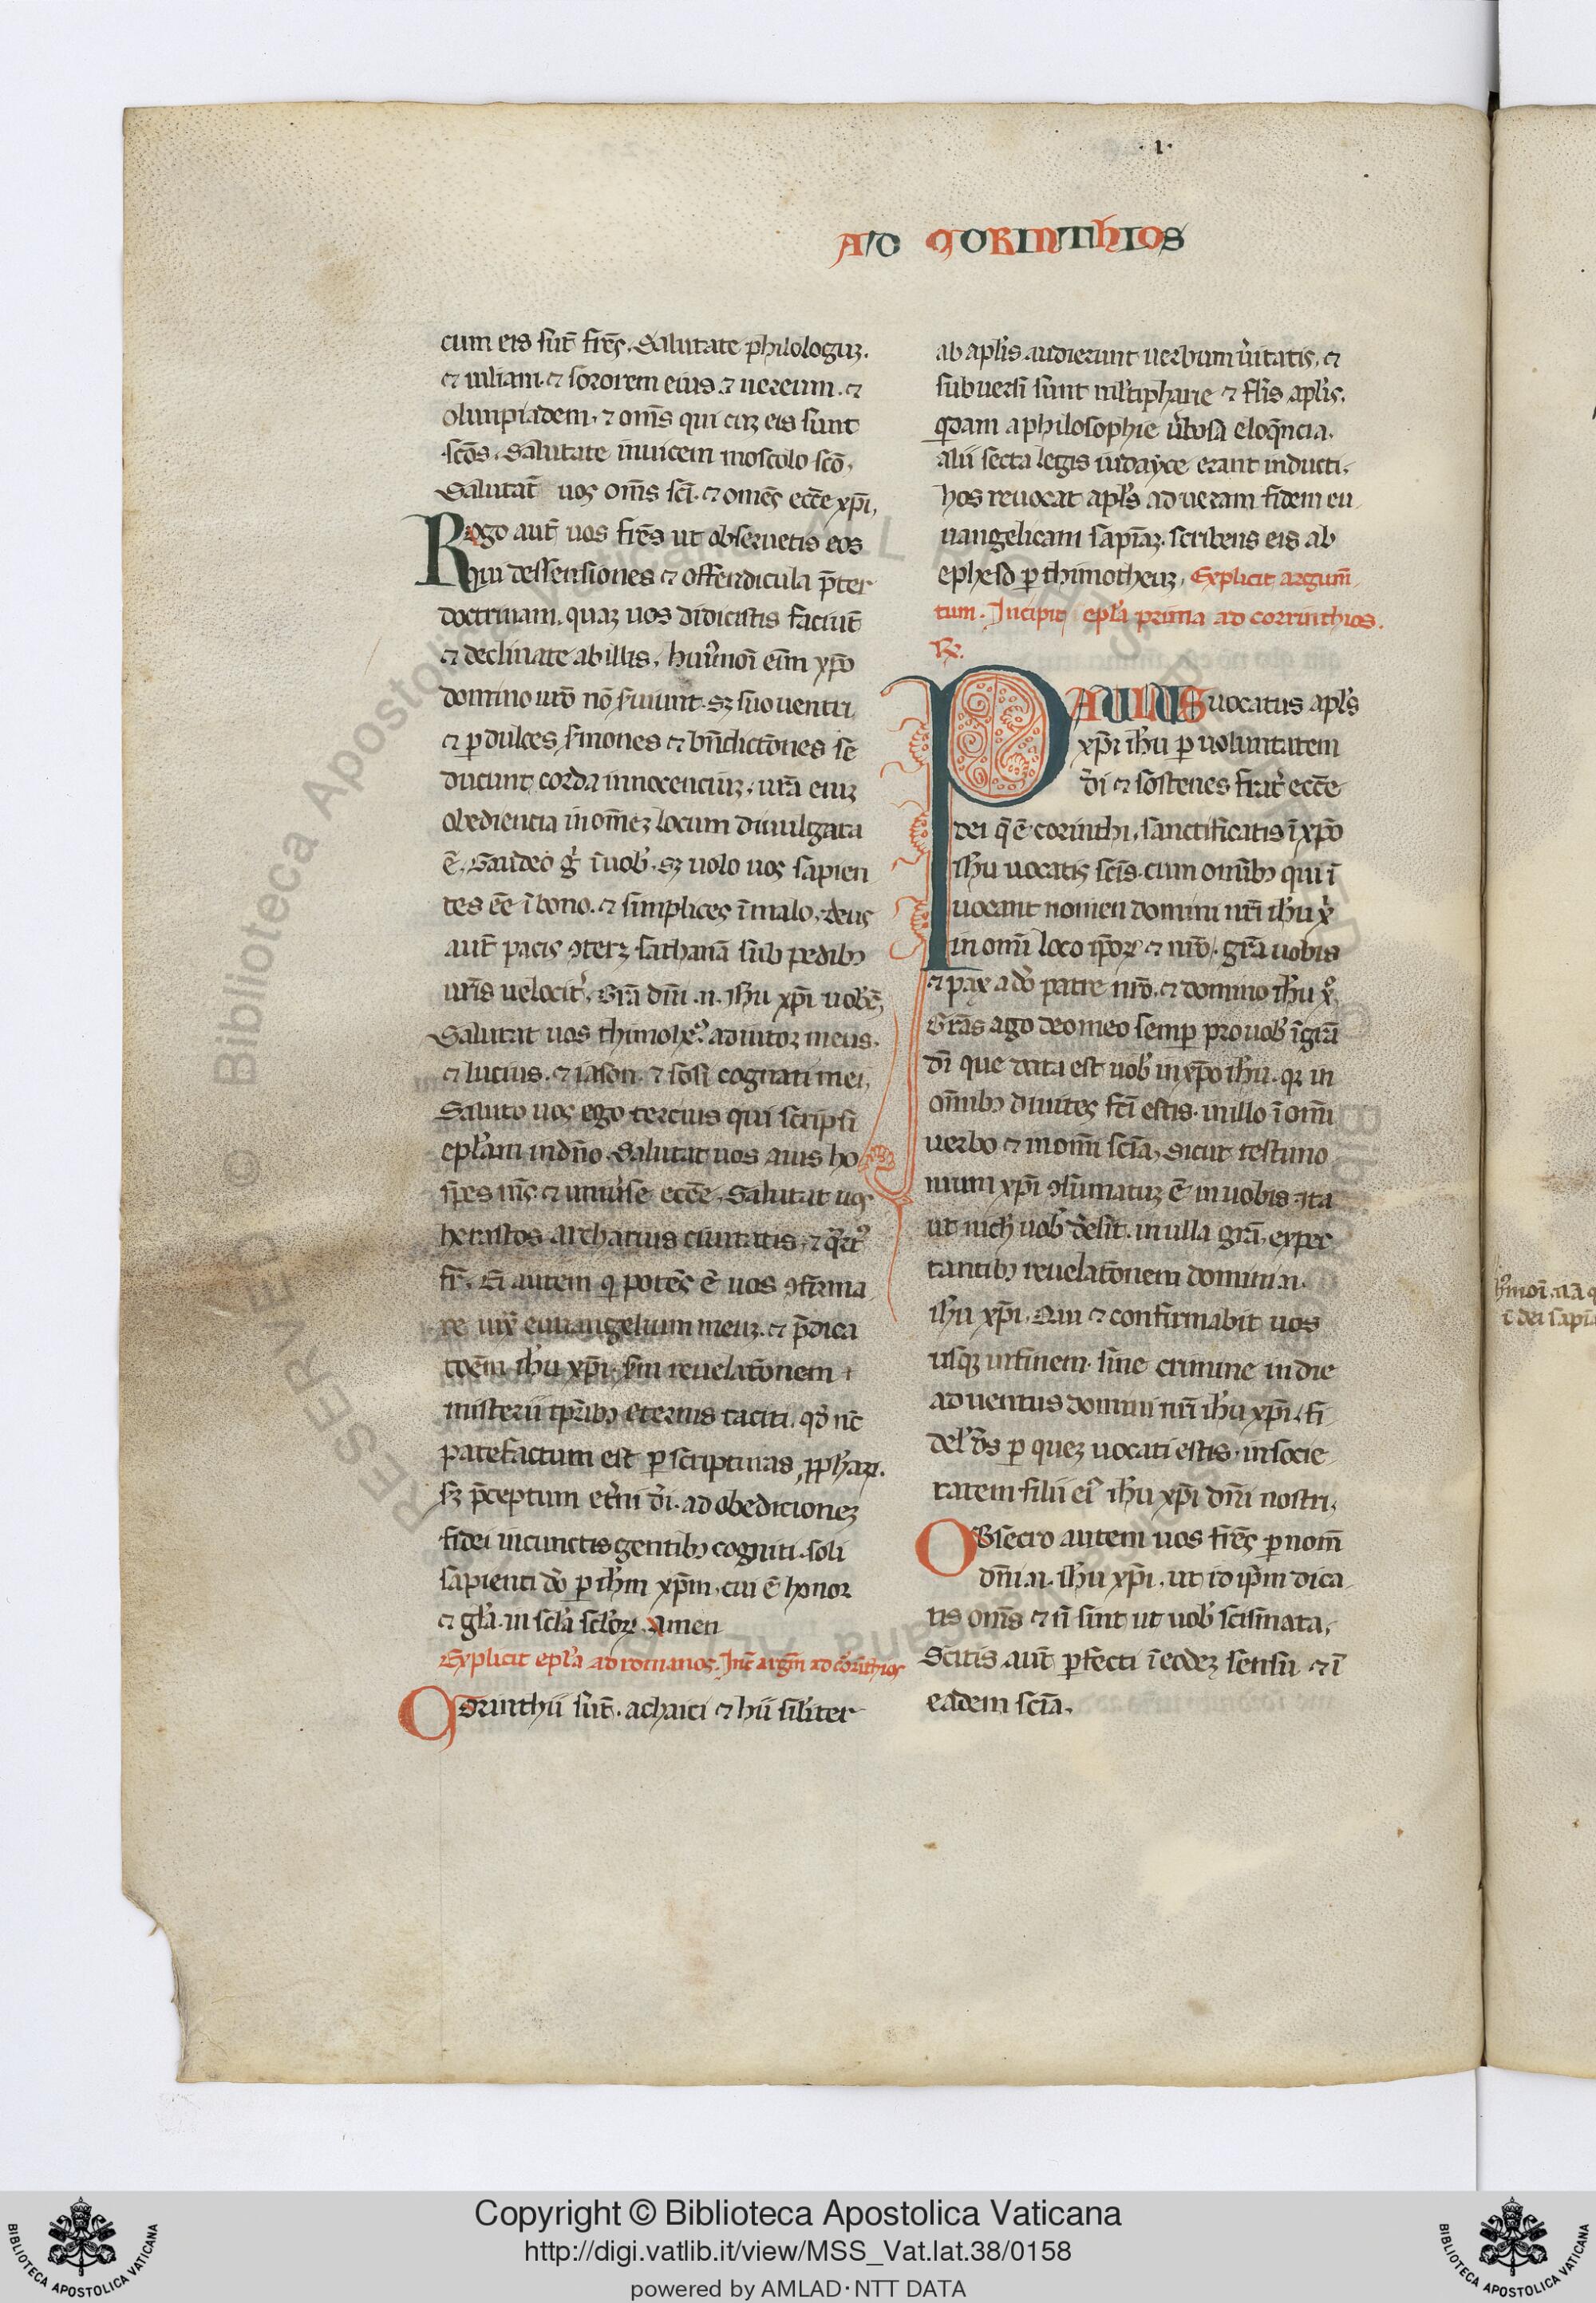 .I.
AD CORINTHIOS
cum eis sūt frēs. Salutate philologuꝫ.
⁊ iuliam. ⁊ sororem eius. ⁊ nereum. ⁊
olimpiadem. ⁊ om̄s qui cuꝫ eis sunt
scōs. Salutate inuicem inosculo scō.
Salutāt uos om̄s scī. ⁊ omēs eccē xp̄i.
Rogo aut̄ uos frēs ut obseruetis eos
qui dessensiones ⁊ offendicula p̄ter
doctrinam. quaꝫ uos didicistis faciūt
⁊ declinate ab illis. hui᷒moī enī xp̄o
domino nr̄o nō s̓uiunt. sꝫ suo uentri
⁊ ꝑ dulces s̓mones ⁊ bn̄dictōnes se
ducunt corda innocenciuꝫ. ur̄a eniꝫ
obediencia in om̄eꝫ locum diuulgata
ē. Gaudeo g̓ ī uob̓. sꝫ uolo uos sapien
tes eē ī bono. ⁊ simplices ī malo. deus
aut̄ pacis ꝯterꝫ sathanā sub pedibꝫ
ur̄is uelocit̓. Gr̄a dn̄i .n. ih̄u xp̄i uob̓c̄.
Salutat uos thimoth᷒ adiutor meus.
⁊ lucius. ⁊ iason. ⁊ sosi cognati mei.
Saluto uos ego tercius qui scripsi
epl̄am in dn̄o. Salutat uos aius ho
sp̄es m̄s ⁊ uniu̓se eccē. Salutat uos
herastos archarius ciuitatis. ⁊ q̄rt᷒
fr̄. Ei autem q̇ potēs ē uos ꝯfirma
re iux̄ euuangelium meuꝫ. ⁊ p̄dica
tōem ih̄u xp̄i. scd̄m reuelatōnem
misterii tp̄ribꝫ eternis taciti. qd̓ nc̄
patefactum est ꝑ scripturas ꝓphaꝝ.
scd̄ꝫ p̄ceptum et̓ni dī. ad obedicioneꝫ
fidei in cunctis gentibꝫ cogniti. soli
sapienti dō ꝑ ih̄m xp̄m. cui ē honor
⁊ gl̄a. in scl̄a scl̄oꝝ. amen
Explicit epl̄a ad romanos. Inc̄ argm̄ ad corinthios
Corinthii sūt. achaici ⁊ hii silīter
ab apl̄is audierunt uerbum u̓itatis. ⁊
subuersi sunt mltipharie ⁊ fl̄is apl̄is.
q̇dam a philosophie u̓bosa eloq̄ncia.
alii secta legis iudayce erant inducti.
hos reuocat apl̄s ad ueram fidem eu
uangelicam sapīaꝫ. scribens eis ab
epheso ꝑ thimotheuꝫ. Explicit argum̄
tum. Incipit epl̄a prima ad corrinthios.
Rx.
PAULUS uocatus apl̄s
xp̄i ih̄u ꝑ uoluntatem
dī ⁊ sostenes frat̓ eccē
dei q̄ ē corinthi. sanctificatis ī xp̄o
ih̄u uocatis scīs. cum omībꝫ qui ī
uocant nomen domini nr̄i ih̄u xp̄i
in omī loco ip̄oꝝ ⁊ nr̄o. gr̄a uobis
⁊ pax a dō patre nr̄o. ⁊ domino ih̄u xp̊.
Gr̄as ago deo meo semꝑ pro uob̓ ī gr̄a
dī que data est uob̓ in xp̄o ih̄u. qꝛ in
om̄ibꝫ diuites fc̄i estis. in illo ī om̄i
uerbo ⁊ in om̄i scīa. Sicut testimo
nium xp̄i ꝯfirmatuꝫ ē in uobis. ita
ut nich̓ uob̓ desit. in ulla gr̄a. expec
tantibꝫ reuelatōnem domini .n.
ih̄u xp̄i. Qui ⁊ confirmabit uos
usqꝫ in finem. sine crimine in die
aduentus domini nr̄i ih̄u xp̄i. fi
del̓ ds̄ ꝑ queꝫ uocati estis. in socie
tatem filii ei᷒ ih̄u xp̄i dn̄i nostri.
OBsecro autem uos frēs ꝑ nom̄
dn̄i .n. ih̄u xp̄i. ut id ip̄m dica
tis om̄s ⁊ n̄ sint ut uob̓ scismata.
Scitis aut̄ ꝑfecti ī eodeꝫ sensu ⁊ ī
eadem scīa.
Copyright © Biblioteca Apostolica Vaticana
http://digi.vatlib.it/view/MSS_Vat.lat.38/0158
powered by AMLAD·NTT DATA
BIBLIOTECA APOSTOLICA VATICANA
BIBLIOTECA APOSTOLICA VATICANA